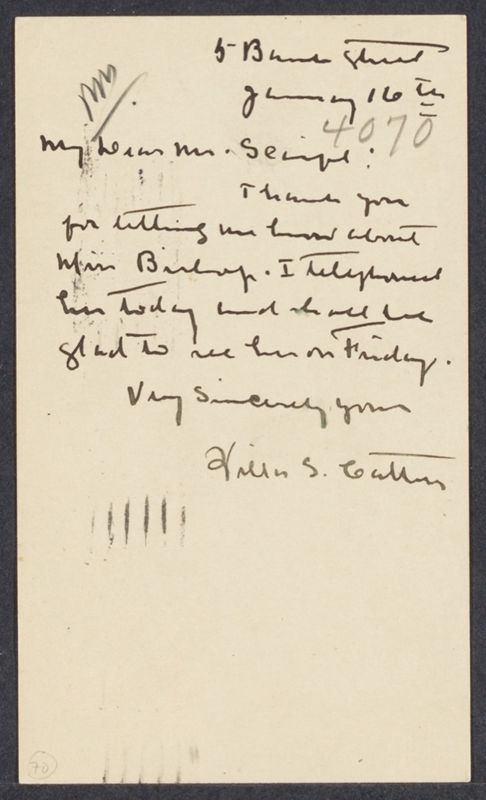 5 Bank Street
January 16th
4070
My Dear Mr. Scaife:
Thank you
for letting me know about
Miss Bishop. I telephoned
her today and shall be
glad to see her on Friday.
Very Sincerely yours
Willa S. Cather
70